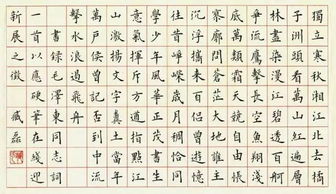 獨立寒秋湘江北去橘
子洲頭看萬山紅遍層
林盡染漫江碧透百舸
爭流鷹擊長空魚翔淺
底萬類霜天競自由悵
寥廓問蒼茫大地誰主
沉浮攜來百侶曾遊憶
往昔崢嶸歲月稠恰同
學少年風華正茂書生
意氣揮斥方遒指點江
山激揚文字糞土當年
萬戶侯曾記否到中流
擊水浪遏飛舟
書錄毛澤東同志詞
一首以應硬筆在綫迎
新展之徵 臧磊